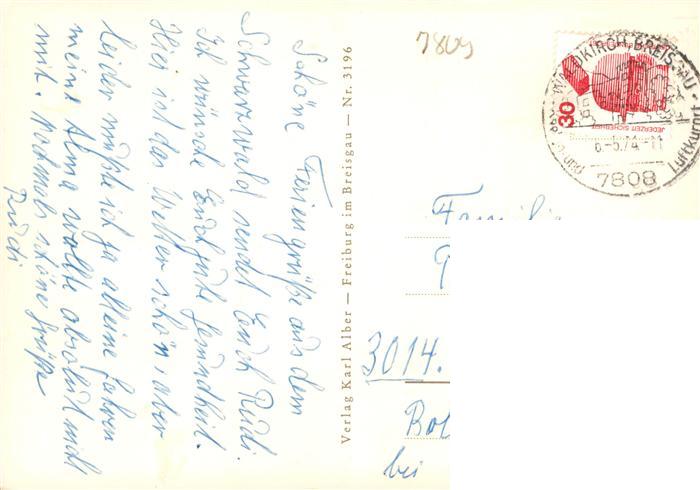 Schöne Feriengrüße aus dem
Schwarzwald sendet Euch Rudi.
Ich wünsche Euch gute Gesundheit.
Hier ist das Wetter schön, aber
leider mußte ich ja alleine fahren
meine Alma wollte absolut nicht
mit. Nochmals schöne Grüße
Rudi
Verlag Karl Alber — Freiburg im Breisgau — Nr. 3196
7809
WALDKIRCH-BREISGAU
30
JEDERZEIT SICHERHEIT
6.-5.74-11
7808
Luftkurort
Familie
3014.
bei